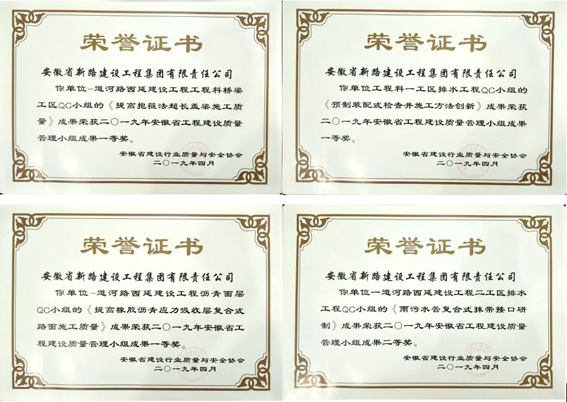 荣誉证书
安徽省新路建设工程集团有限责任公司
你单位-道河路西延建设工程工程科桥梁
工区QC小组的《提高抱箍法超长盖梁施工质
量》成果荣获二〇一九年安徽省工程建设质量
管理小组成果一等奖。
安徽省建设行业质量与安全协会
二〇一九年四月
荣誉证书
安徽省新路建设工程集团有限责任公司
你单位工程科一工区排水工程QC小组的
《预制装配式检查井施工方法创新》成果荣获
二〇一九年安徽省工程建设质量管理小组成果
一等奖。
安徽省建设行业质量与安全协会
二〇一九年四月
荣誉证书
安徽省新路建设工程集团有限责任公司
你单位-道河路西延建设工程沥青面层
QC小组的《提高橡胶沥青应力吸收层复合式
路面施工质量》成果荣获二〇一九年安徽省工
程建设质量管理小组成果一等奖。
安徽省建设行业质量与安全协会
二〇一九年四月
荣誉证书
安徽省新路建设工程集团有限责任公司
你单位-道河路西延建设工程二工区排水
工程QC小组的《雨污水管复合式抹带接口研
制》成果荣获二〇一九年安徽省工程建设质量
管理小组成果二等奖。
安徽省建设行业质量与安全协会
二〇一九年四月